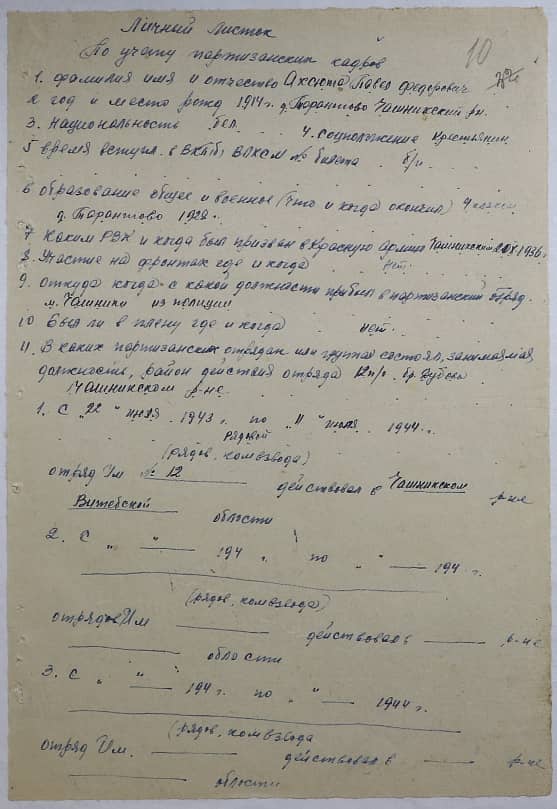 Личный листок
По учёту партизанских кадров
10
1. Фамилия имя и отчество Аксюта Павел Федорович
2 год и место рожд 1914 г. д. Тарантово Чашникский рн.
3. Национальность бел. 4. Соцположение Крестьянин
5 время вступл. в ВКП(б) ВЛКСМ № билета б/п
6 образование общее и военное (что и когда окончил) 4 класса
д. Тарантово 1928 г.
7 Каким РВК и когда был призван в Красную Армию Чашникский 1936 г.
8. Участие на фронтах где и когда нет
9. откуда когда с какой должности прибыл в партизанский отряд
м. Чашники из полиции
10 Был ли в плену где и когда нет.
11. В каких партизанских отрядах или группах состоял, занимаемая
должность, район действия отряда 12 п/о. бр. Дубова
Чашникском р-не
1. С "22" июля 1943 г. по "11" июля 1944 г.
рядовой
(рядов, комвзвода)
отряд Им № 12 действовал в Чашникском р-не
Витебской области
2. С " " — 194 г. по " " — 194 г.
(рядов, комвзвода)
отрядов Им — действовал в — р-не
— области
3. С " " — 194 г. по " " — 1944 г.
(рядов, комвзвода
отряд Им. — действовал в — р-не
— области